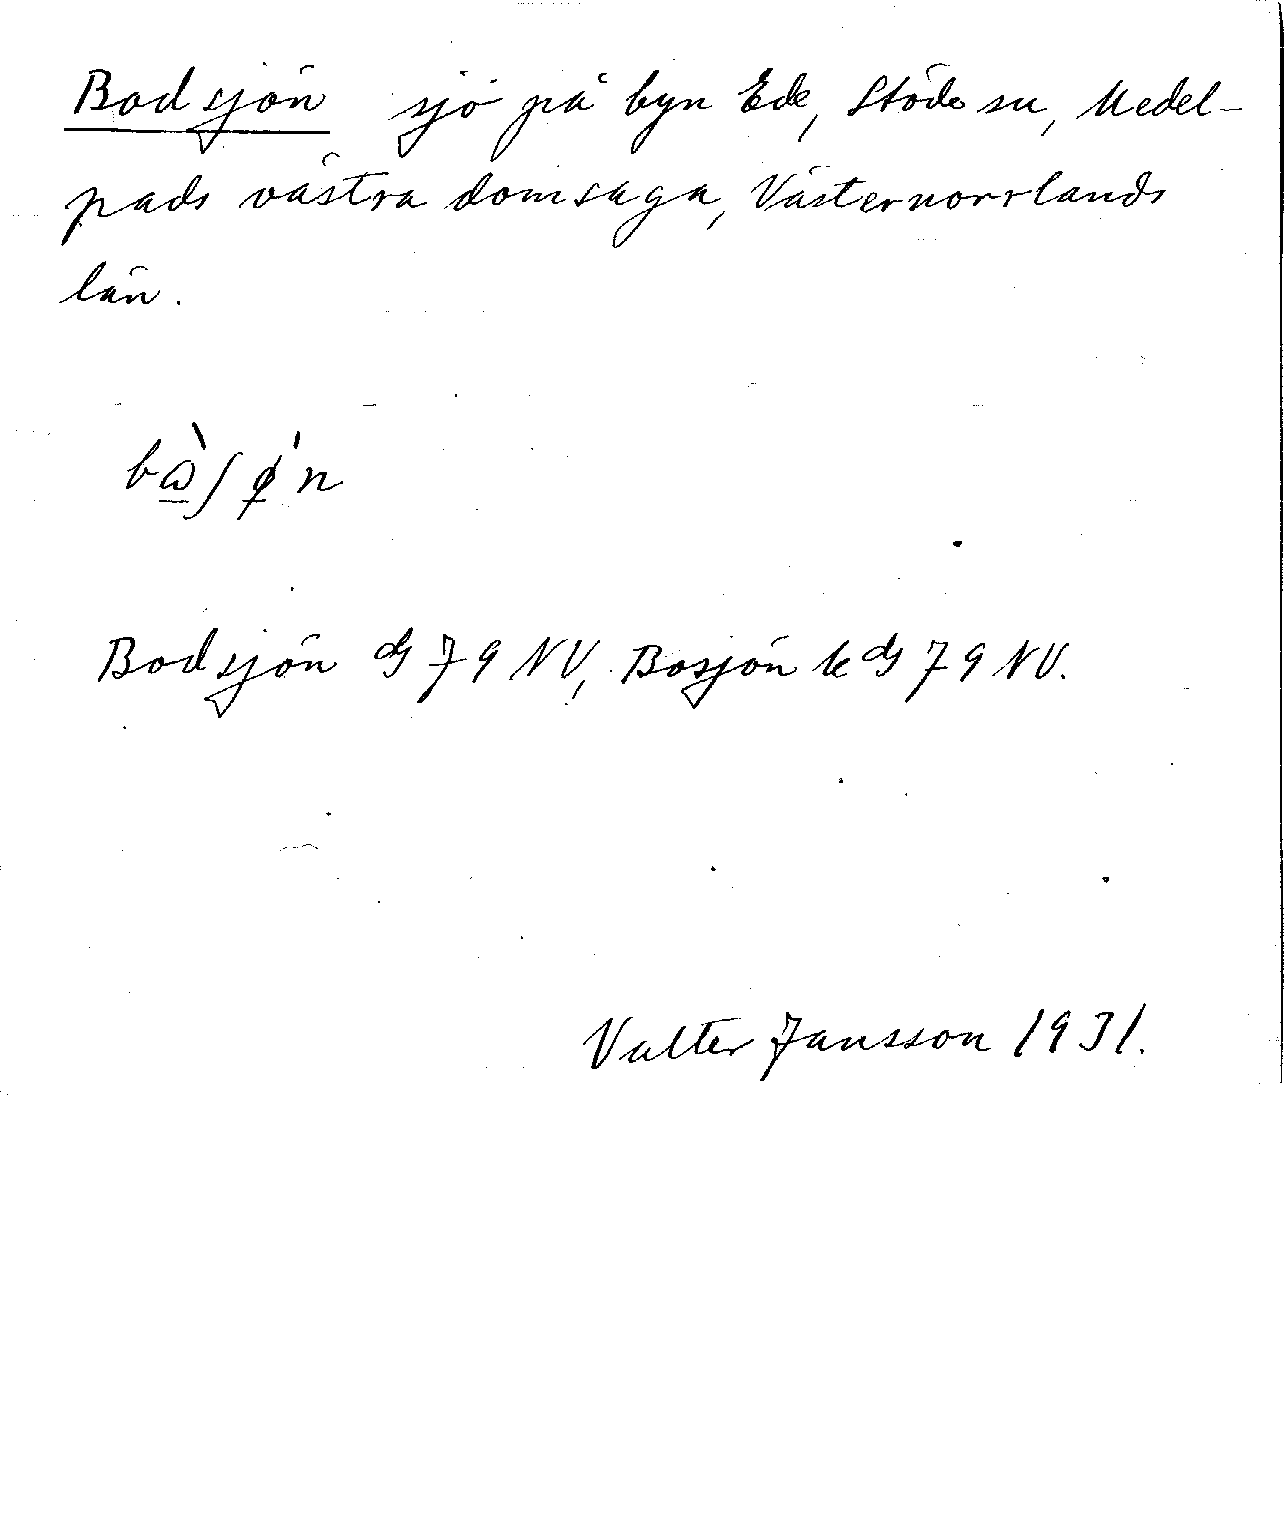 Bodsjön sjö på byn Ede, Stöde sn, Medel-
pads västra domsaga, Västernorrlands
län.
bɷ̀ʃǿn
Bodsjön dG 79 NV, Bosjön k dG 79 NV.
Valter Jansson 1931.